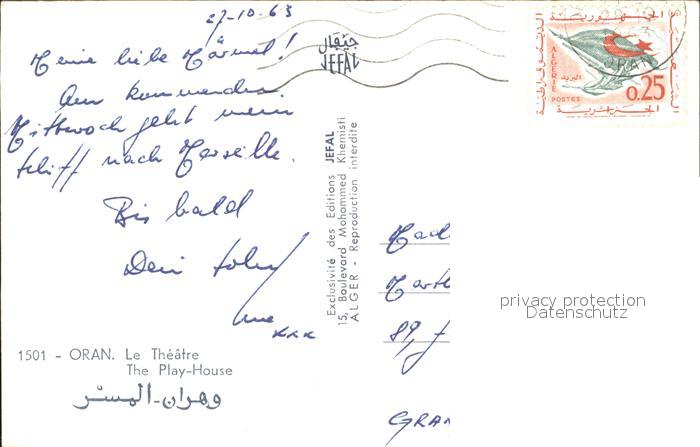 27-10.63
Meine liebe
Am kommenden
Mittwoch geht mein
Schiff nach Marseille.
Bis bald
Dein Sohn
xxx
1501 - ORAN. Le Théâtre
The Play-House
وهران-المسرّ
جيفال
JEFAL
Exclusivité des Editions JEFAL
15, Boulevard Mohammed Khemisti
ALGER - Reproduction interdite
الجمهورية
الجزائرية
ALGERIE
POSTES
البريد
0.25
ORAN
Mad
89,
GRAN
privacy protection
Datenschutz